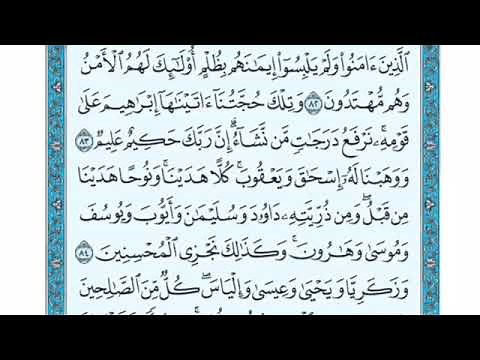 ٱلَّذِينَ ءَامَنُوا۟ وَلَمْ يَلْبِسُوٓا۟ إِيمَـٰنَهُم بِظُلْمٍ أُو۟لَـٰٓئِكَ لَهُمُ ٱلْأَمْنُ
وَهُم مُّهْتَدُونَ ٨٢ وَتِلْكَ حُجَّتُنَآ ءَاتَيْنَـٰهَآ إِبْرَٰهِيمَ عَلَىٰ
قَوْمِهِۦ ۚ نَرْفَعُ دَرَجَـٰتٍ مَّن نَّشَآءُ ۗ إِنَّ رَبَّكَ حَكِيمٌ عَلِيمٌ ٨٣
وَوَهَبْنَا لَهُۥٓ إِسْحَـٰقَ وَيَعْقُوبَ ۚ كُلًّا هَدَيْنَا ۚ وَنُوحًا هَدَيْنَا
مِن قَبْلُ ۖ وَمِن ذُرِّيَّتِهِۦ دَاوُۥدَ وَسُلَيْمَـٰنَ وَأَيُّوبَ وَيُوسُفَ
وَمُوسَىٰ وَهَـٰرُونَ ۚ وَكَذَٰلِكَ نَجْزِى ٱلْمُحْسِنِينَ ٨٤
وَزَكَرِيَّا وَيَحْيَىٰ وَعِيسَىٰ وَإِلْيَاسَ ۖ كُلٌّ مِّنَ ٱلصَّـٰلِحِينَ